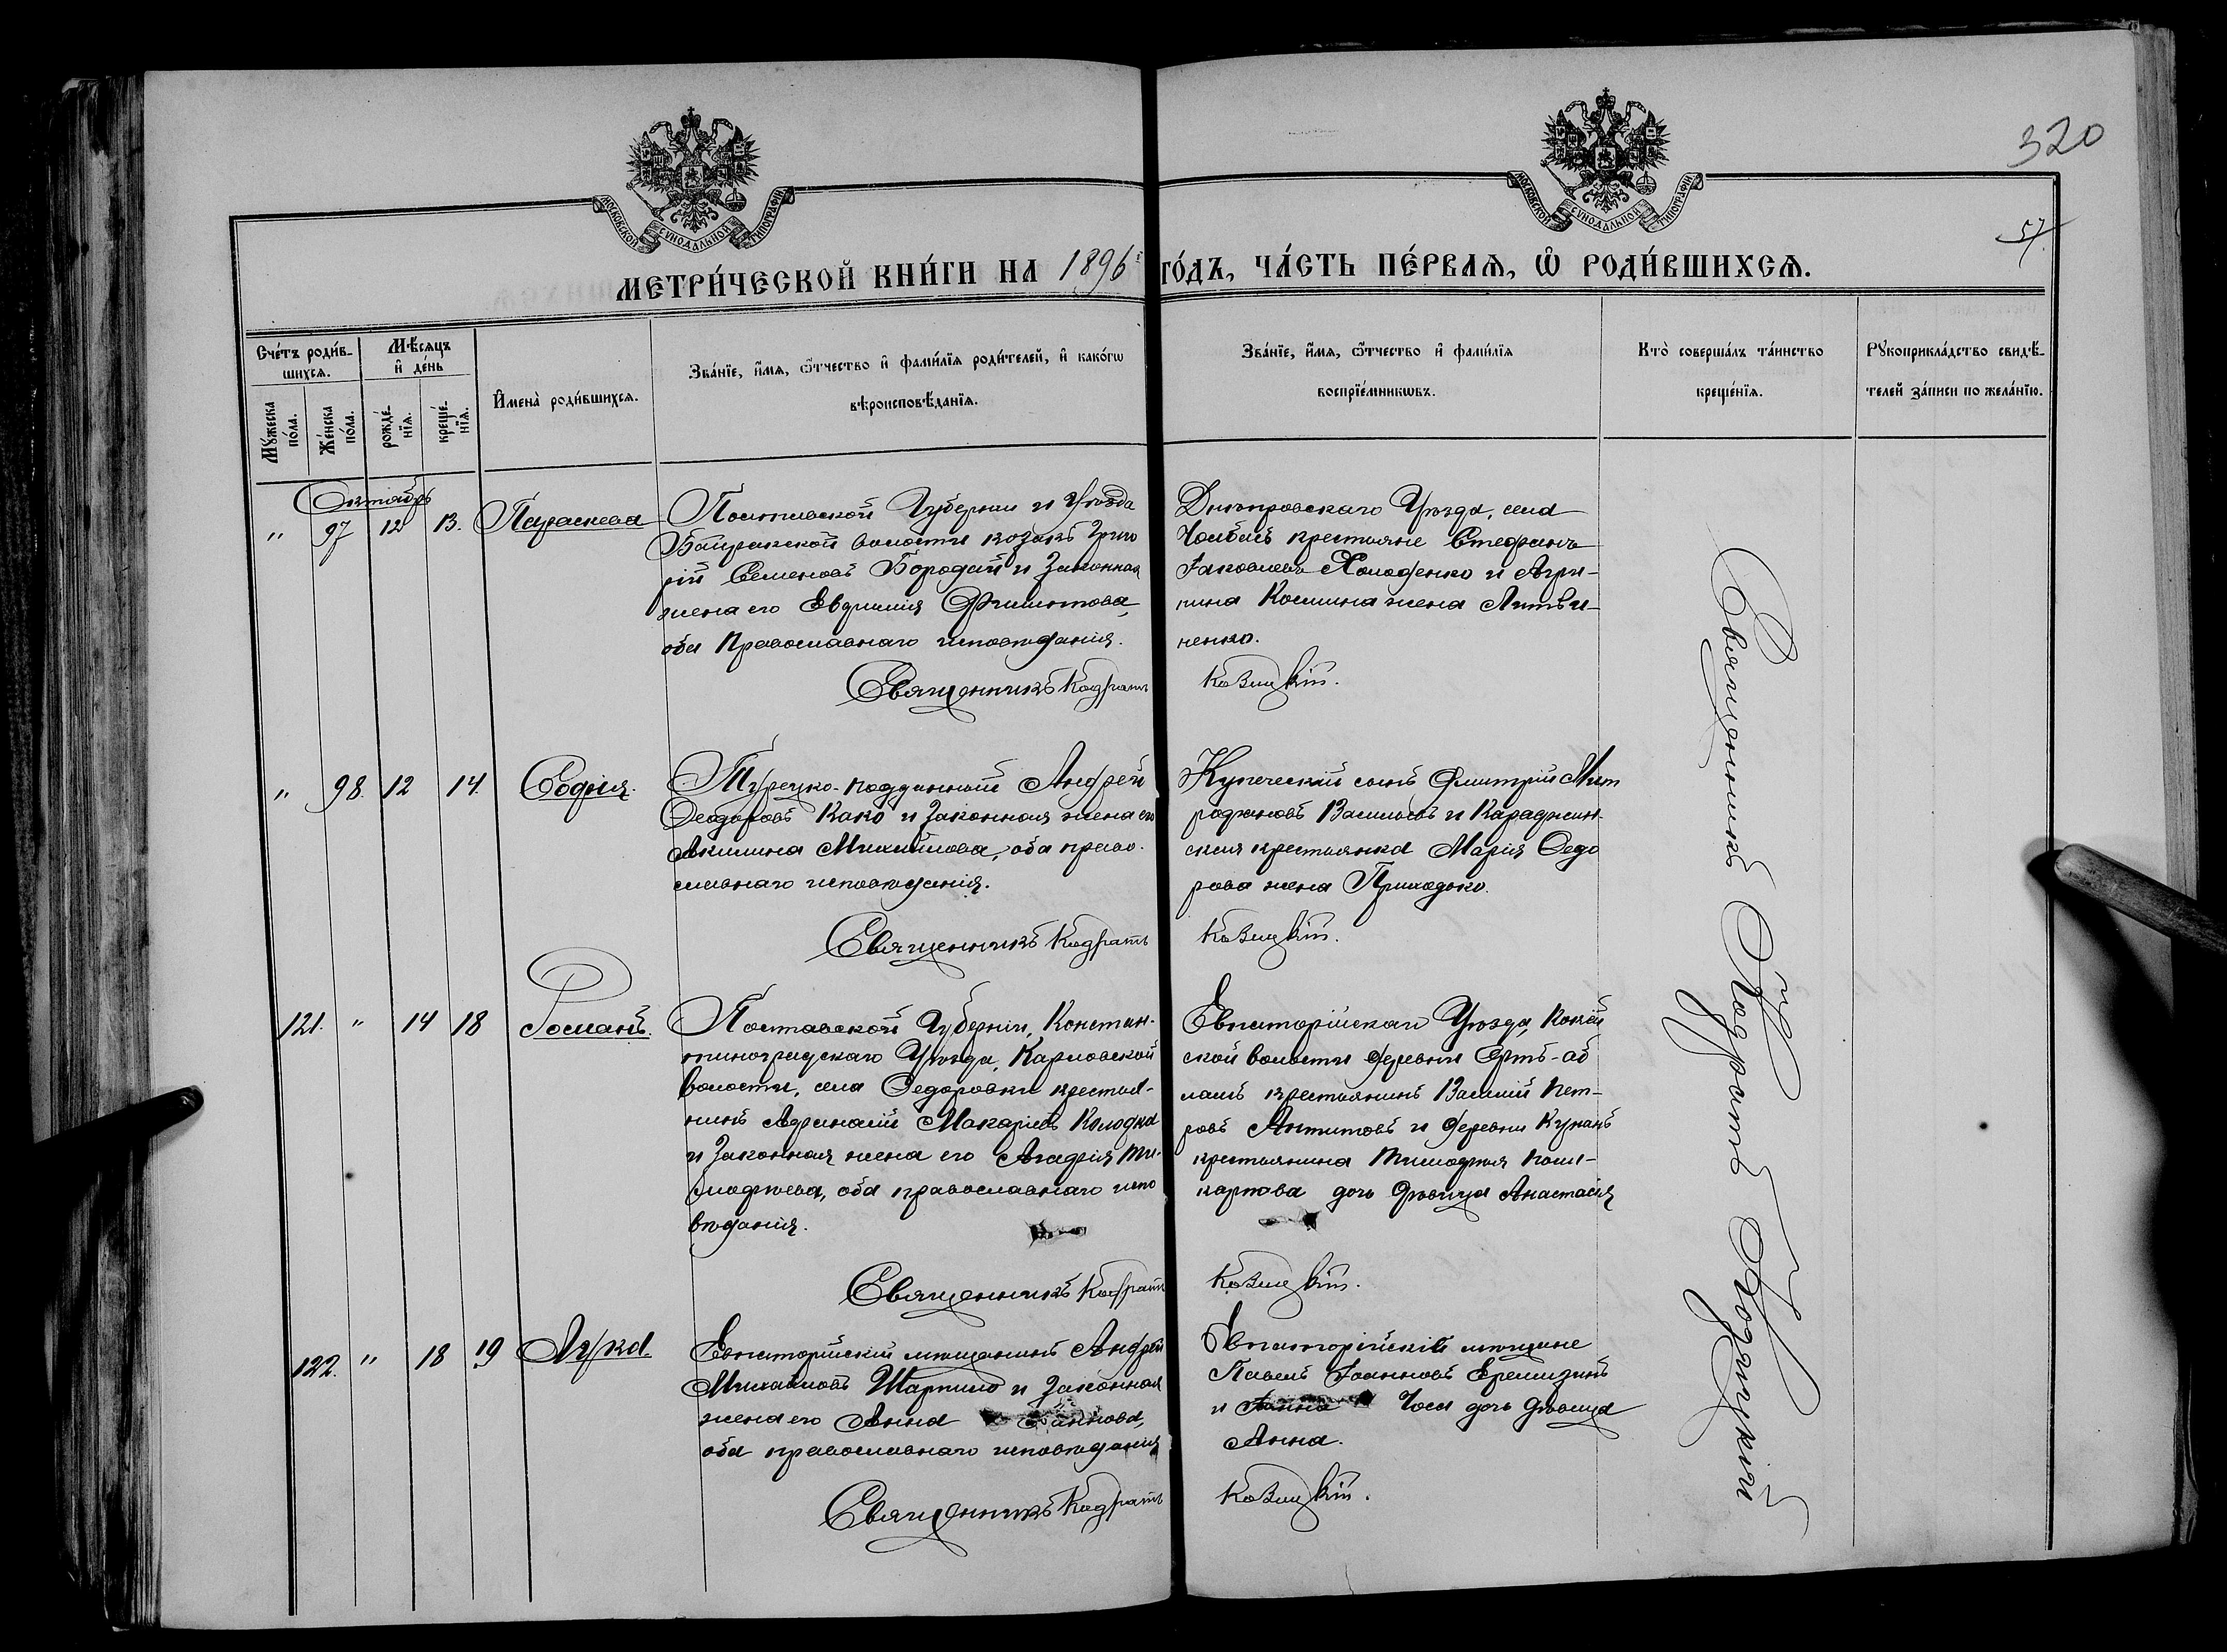 320
57
МОСКОВСКОЙ СѴНОДАЛЬНОЙ ТИПОГРАФІИ
МОСКОВСКОЙ СѴНОДАЛЬНОЙ ТИПОГРАФІИ
МЕТРИ́ЧЕСКОЙ КНИ́ГИ НА 1896 ГО́ДЪ, ЧА́СТЬ ПЕ́РВАѦ, Ѽ РОДИ́ВШИХСѦ.
Сче́тъ роди́в-
шихсѧ.
Мѣ́сѧцъ
и҆ де́нь
Мꙋ́жеска
по́ла.
Же́нска
по́ла.
рожде́-
нїѧ.
креще́-
нїѧ.
И҆мена̀ роди́вшихсѧ.
Зва́нїе, и҆́мѧ, ѻ҆́тчество и҆ фами́лїѧ роди́телей, и҆ како́гѡ
вѣроисповѣ́данїѧ.
Зва́нїе, и҆́мѧ, ѻ҆́тчество и҆ фами́лїѧ
воспрїе́мникѡвъ.
Кто̀ соверша́лъ та́инство
креще́нїѧ.
Рꙋкоприкла́дство свидѣ́-
телей за́писи по жела́нїю.
Октябрь
" 97 12 13. Параскева
Полтавской Губерніи и Уѣзда
Байракской волости козакъ Григо
рій Семеновъ Бородай и законная
жена его Евдокія Филипова,
оба Православнаго исповѣданія.
Священникъ Кодратъ
Днѣпровскаго Уѣзда, села
Чолбасъ крестьяне Стефанъ
Іаковлевъ Холоденко и Агри-
пина Косьмина жена Литви-
ненко.
Козицкій.
" 98. 12 14. Софія.
Турецко-подданный Андрей
Феодоровъ Како и законная жена его
Акилина Михайлова, оба право-
славнаго исповѣданія.
Священникъ Кодратъ
Купеческій сынъ Димитрій Мит
рофановъ Васильевъ и Караджин-
ская крестьянка Марія Федо
рова жена Приходько.
Козицкій.
121. " 14 18 Романъ.
Полтавской Губерніи, Констан-
тиноградскаго Уѣзда, Карловской
волости, села Федоровки крестья-
нинъ Афанасій Макаріевъ Колодка
и законная жена его Агафія Ти-
мофѣева, оба православнаго испо
вѣданія.
Священникъ Кодратъ
Евпаторійскаго Уѣзда,
ской волости деревни
крестьянинъ Василій Пет-
ровъ Антиповъ и деревни
крестьянина Тимофея Поли-
карпова дочь дѣвица Анастасія
Козицкій.
122. " 18 19 Лука
Евпаторійскій мѣщанинъ Андрей
Михайловъ Шарпило и законная
жена его Анна Іоаннова,
оба православнаго исповѣданія
Священникъ Кодратъ
Евпаторійскій мѣщане
Павелъ Іоанновъ
и дочь дѣвица
Анна.
Козицкій.
Священникъ Кодратъ Козицкій